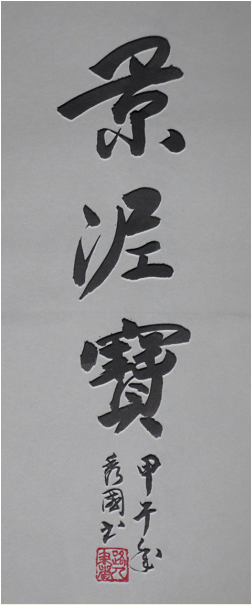 景泥寶
甲午年
秀國书